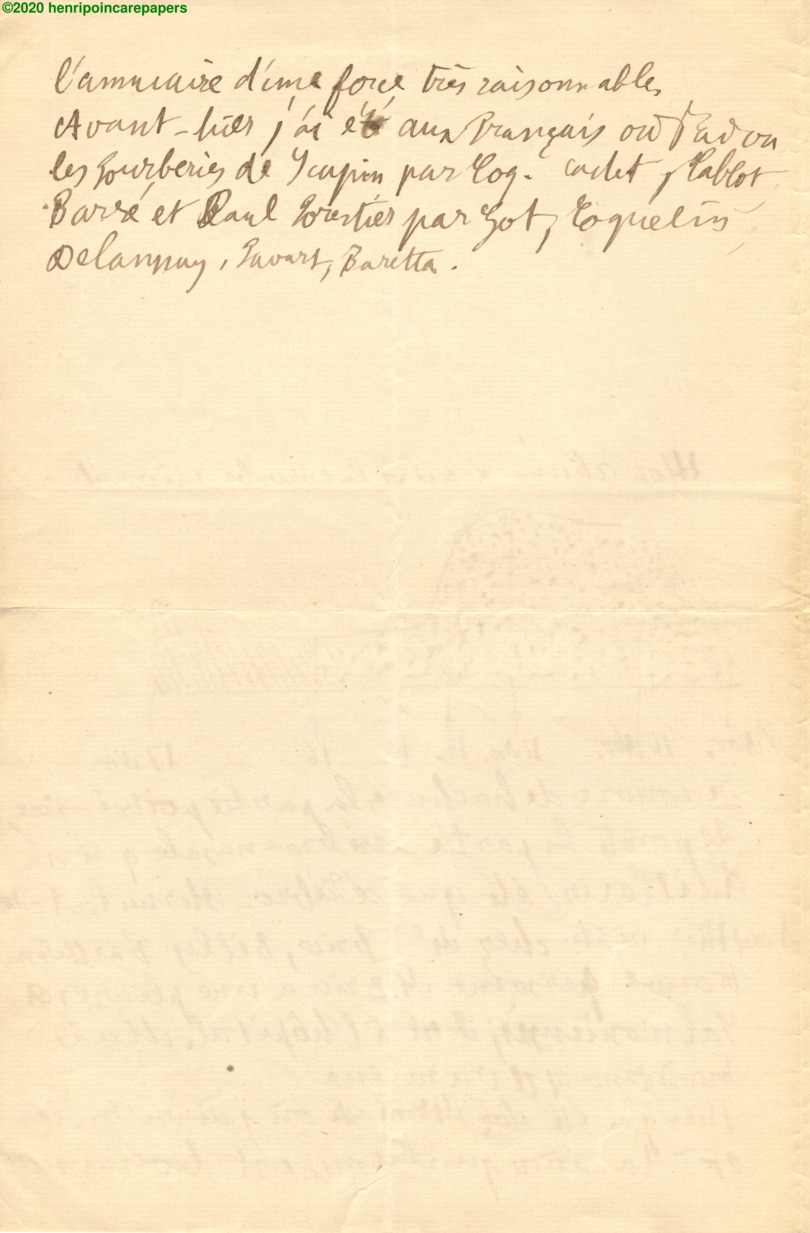 ©2020 henripoincarepapers
l'annuaire d'une force très raisonnable,
Avant-hier j'ai été aux Français où
les fourberies de Scapin par Coq. cadet,
Barré et Paul Forestier par Got, Coquelin,
Delaunay, Favart, Baretta.